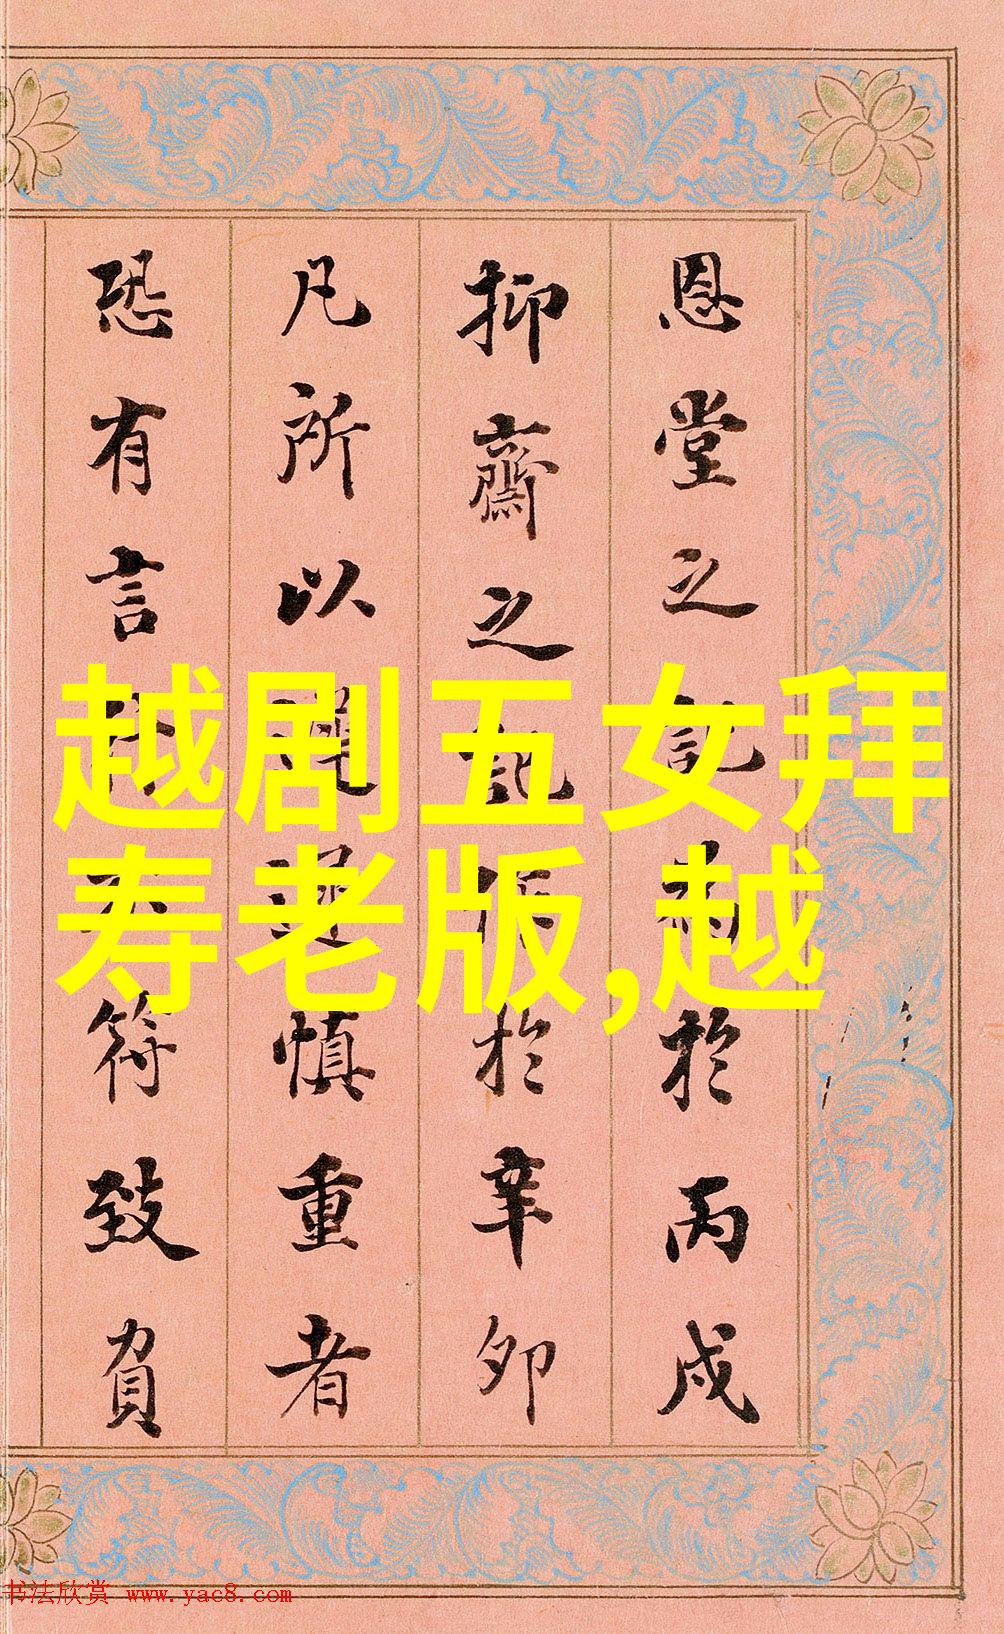 恩堂之記成於丙戌
抑齋之記作於辛卯
凡所以謹慎重者
恐有言行不符致負
越剧五女拜
寿老版,越
书法欣赏 www.yac8.com